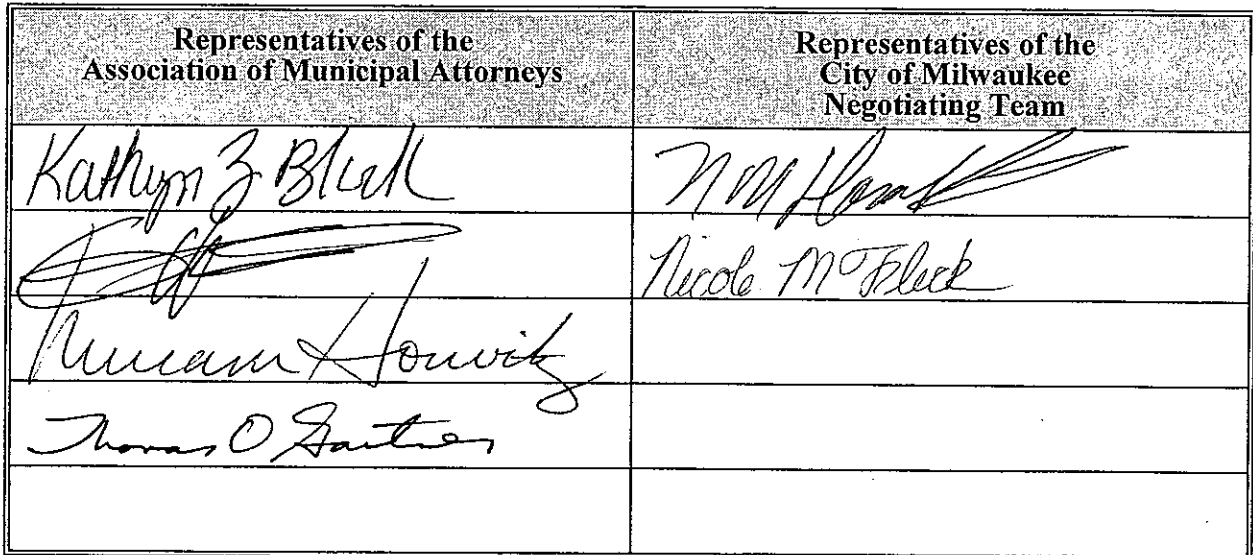 Representatives of the
Association of Municipal Attorneys
Representatives of the
City of Milwaukee
Negotiating Team
Kathryn Z Block
Miriam Horwitz
Nicole M Fleck
Thomas O Gartner